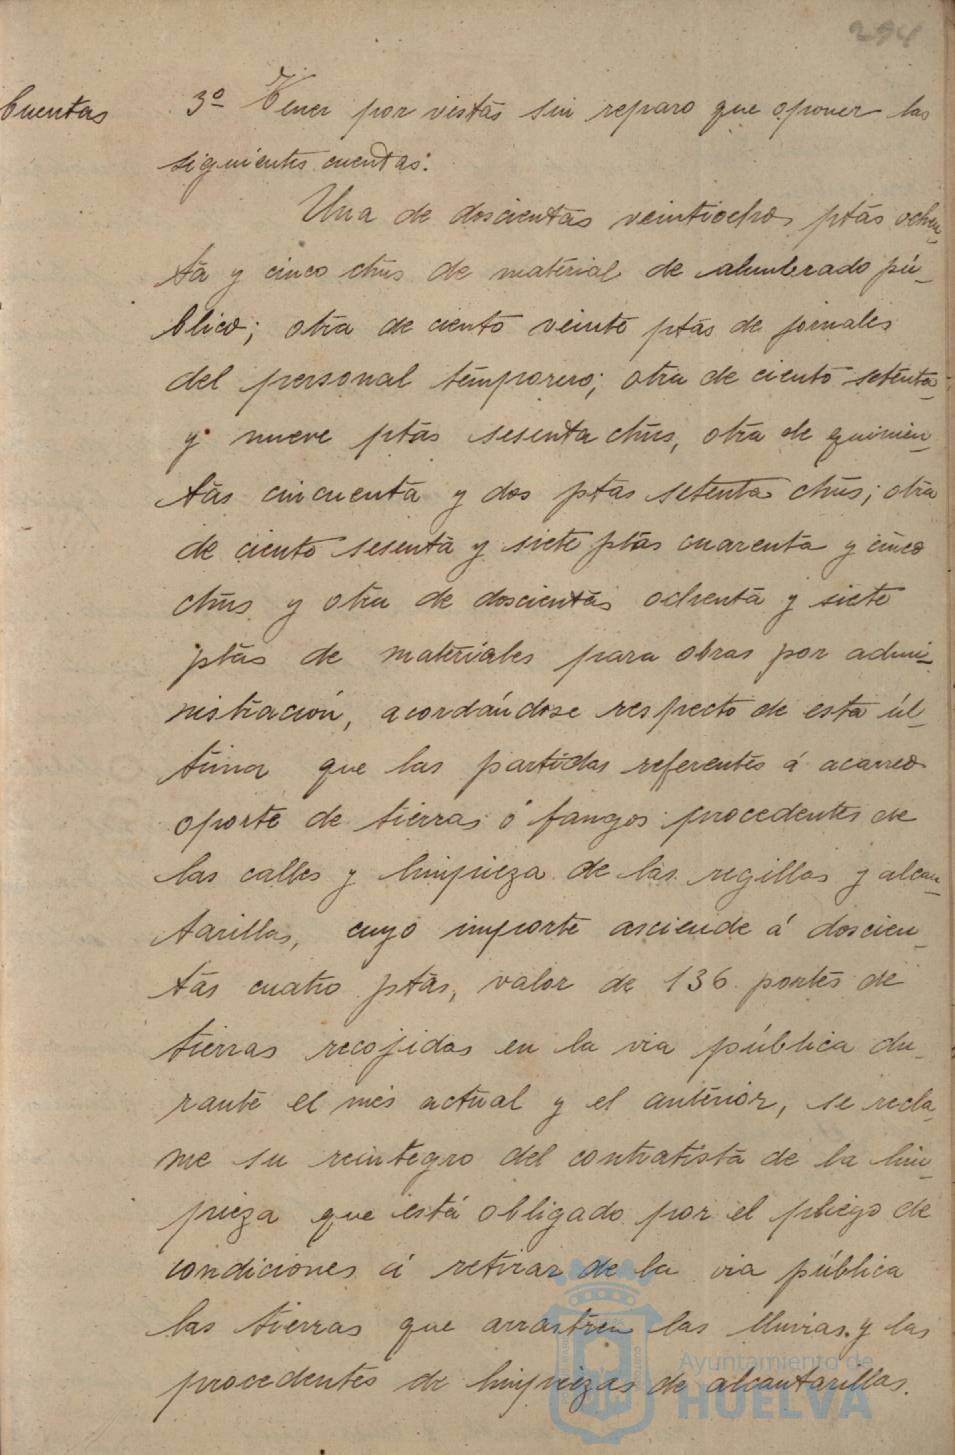 294
Cuentas
3º Tener por vistas sin reparo que oponer las
siguientes cuentas:
Una de doscientas veintiocho ptas ochen-
ta y cinco ctms de material de alumbrado pú-
blico; otra de ciento veinte ptas de jornales
del personal temporero; otra de ciento setenta
y nueve ptas sesenta ctms, otra de quinien-
tas cincuenta y dos ptas setenta ctms; otra
de ciento sesenta y siete ptas cuarenta y cinco
ctms y otra de doscientas ochenta y siete
ptas de materiales para obras por admi-
nistración, acordándose respecto de esta úl-
tima que las partidas referentes á acarreo
oporte de tierras ó fangos procedentes de
las calles y limpieza de las regillas y alcan-
tarillas, cuyo importe asciende á doscien-
tas cuatro ptas, valor de 136 portes de
tierras recojidas en la via pública du-
rante el mes actual y el anterior, se recla-
me su reintegro del contratista de la lim-
pieza que está obligado por el pliego de
condiciones á retirar de la via pública
las tierras que arrastren las lluvias y las
procedentes de limpiezas de alcantarillas.
Ayuntamiento de
HUELVA